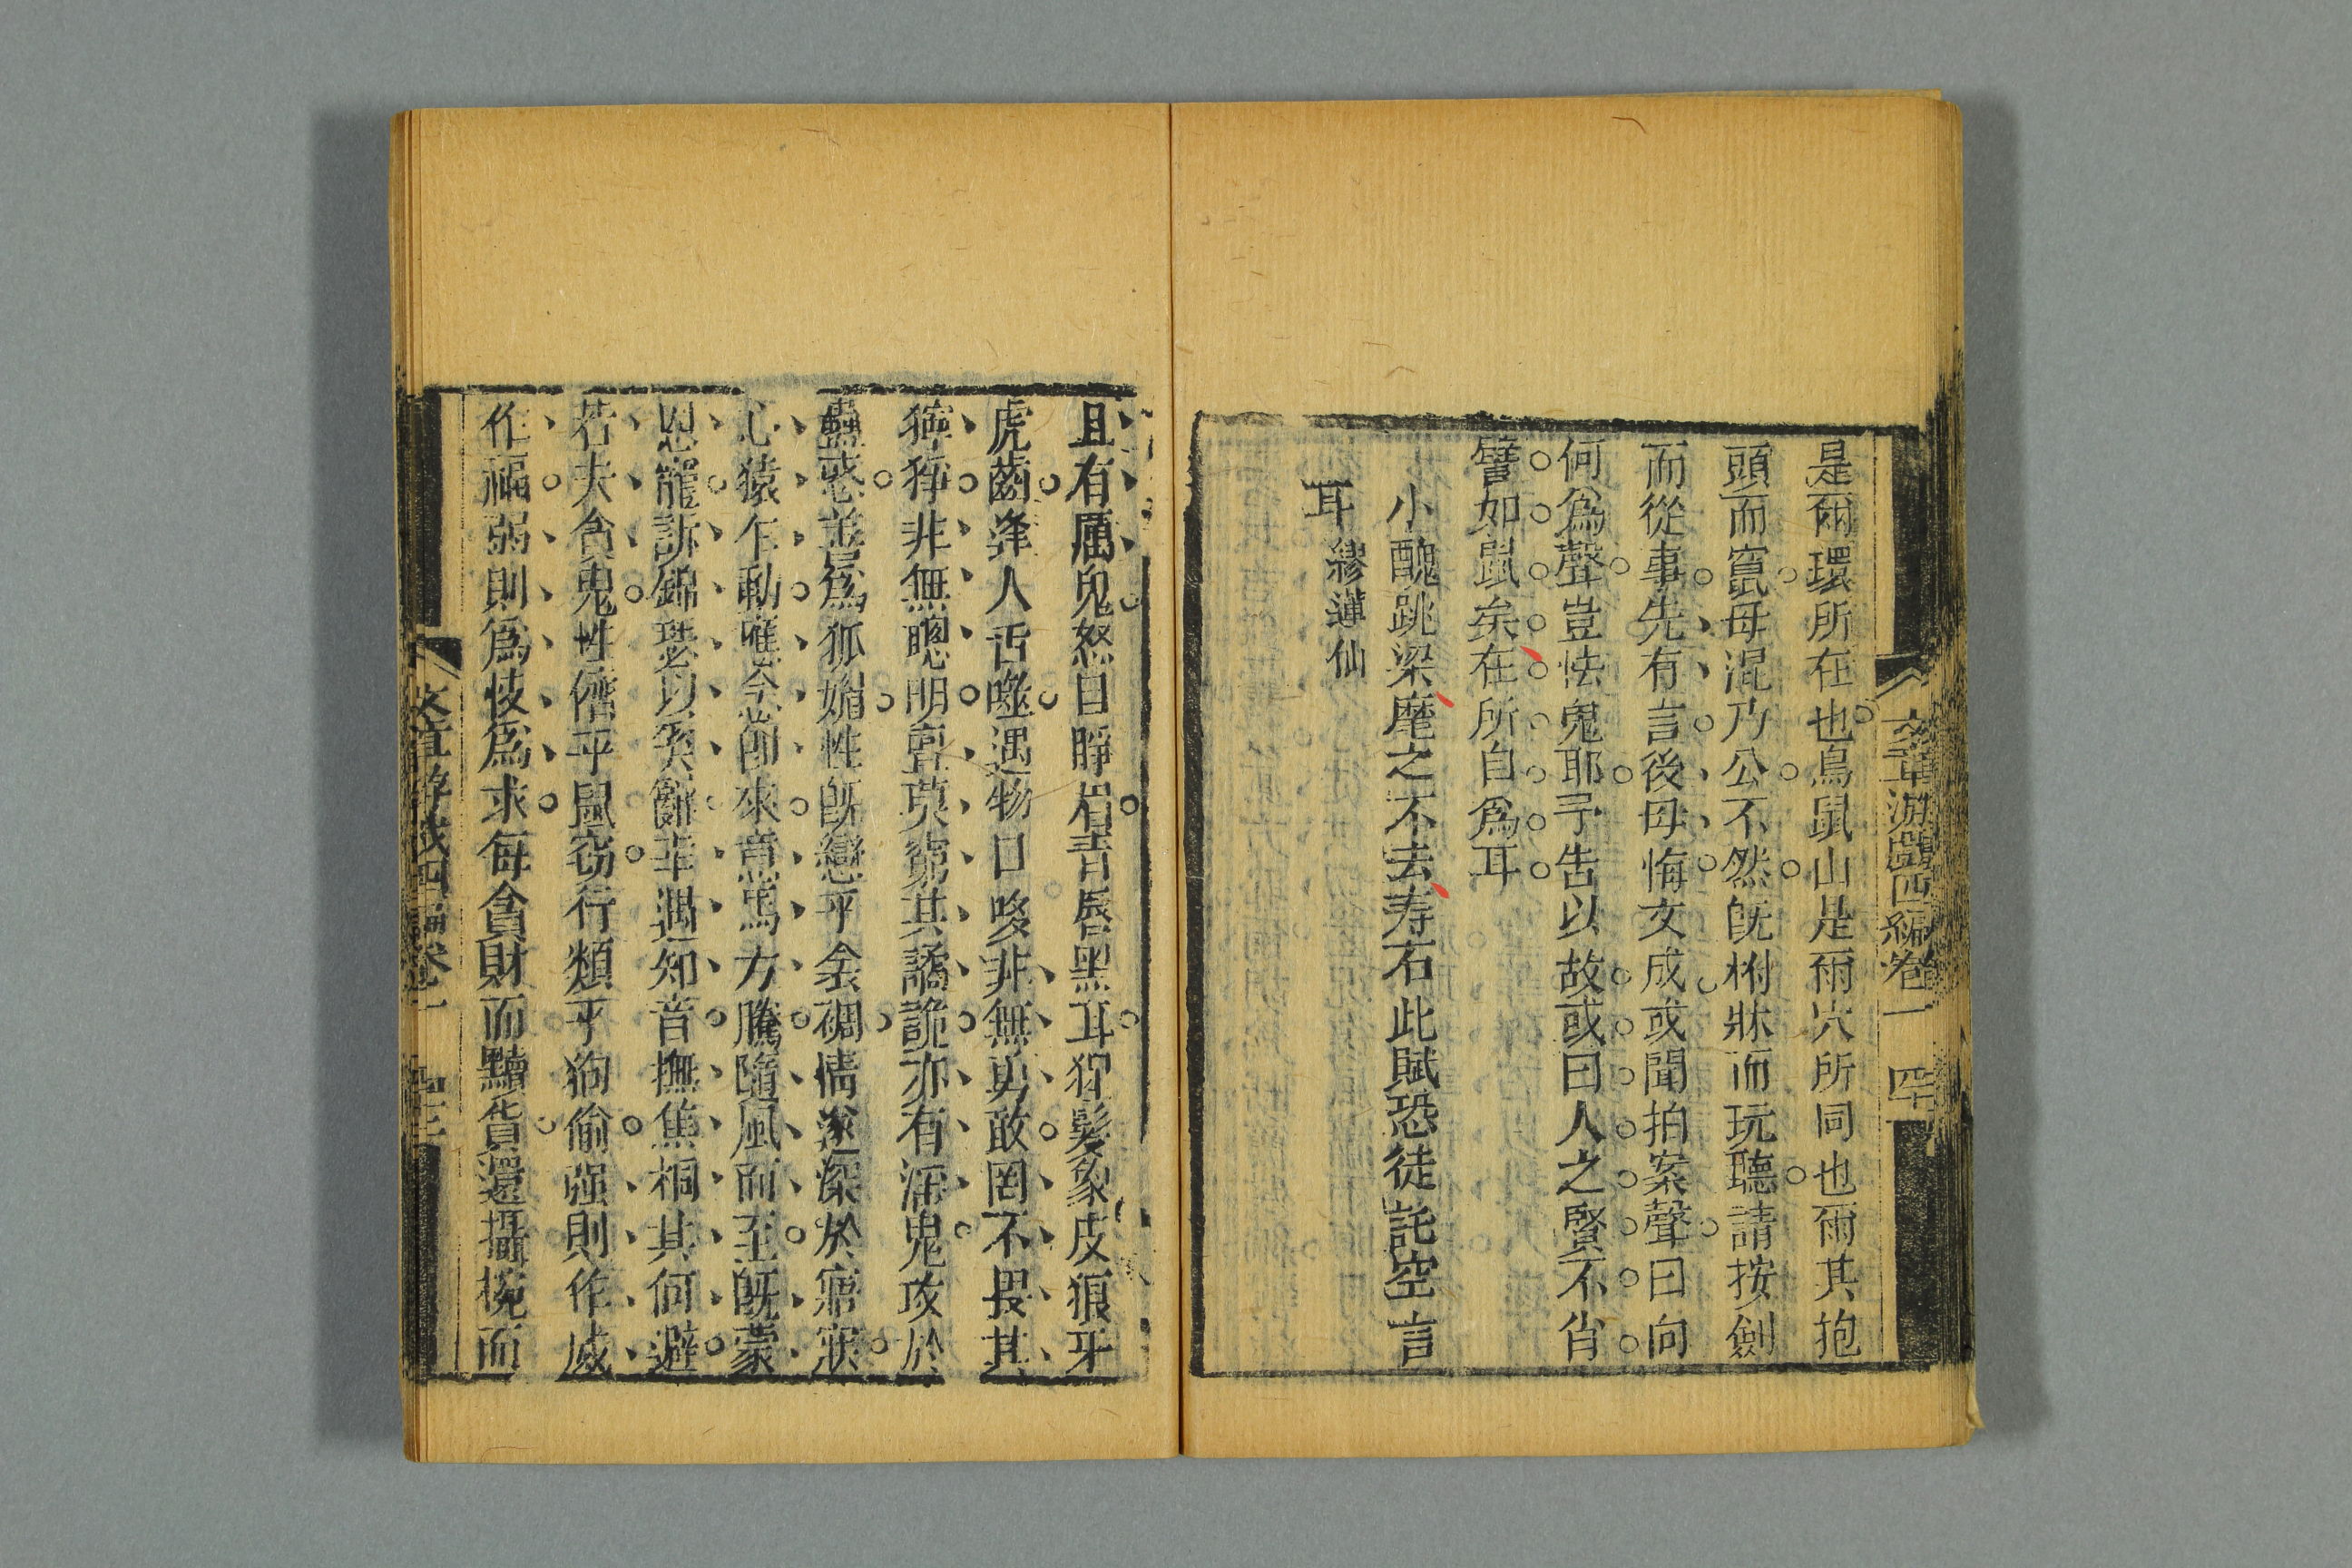 文章游戲四編卷一
是爾環所在也鳥鼠山是爾穴所同也爾其抱
頭而竄毋混乃公不然旣柎牀而玩聽請按劍
而從事先有言後毋悔文成或聞拍案聲曰向
何爲聲豈怯鬼耶予告以故或曰人之賢不肖
譬如鼠矣在所自爲耳
小醜跳梁麾之不去寿石此賦恐徒託空言
耳 繆蓮仙
且有厲鬼怒目睜眉青唇黑耳猬髮象皮狼牙
虎齒逢人舌噬遇物口唆非無勇敢罔不畏其
獰狰非無聰明鮮莫窮其譎詭亦有淫鬼攻於
蠱惑善爲狐媚性旣戀乎金碉情遂深於寤寐
心猿乍動應念卽來意馬方騰隨風而至旣蒙
恩寵訴錦瑟以奚辭幸遇知音撫焦桐其何避
若夫貪鬼性儕乎鼠窃行類乎狗偷强則作威
作福弱則爲忮爲求每貪財而黷貨還攝椀而
文章游戲四編卷一